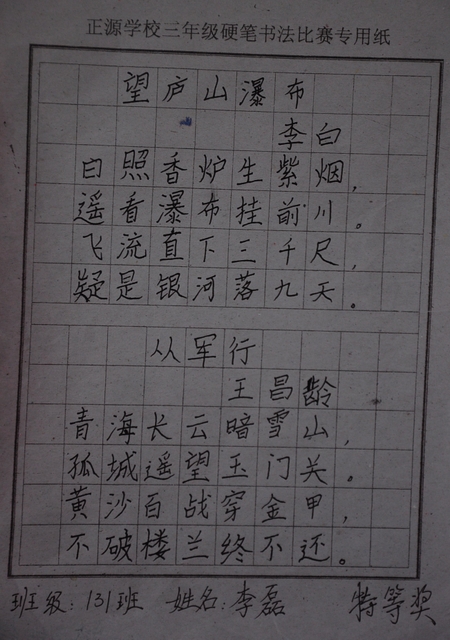 正源学校三年级硬笔书法比赛专用纸
望庐山瀑布
李白
日照香炉生紫烟,
遥看瀑布挂前川。
飞流直下三千尺,
疑是银河落九天。
从军行
王昌龄
青海长云暗雪山,
孤城遥望玉门关。
黄沙百战穿金甲,
不破楼兰终不还。
班级:131班 姓名:李磊 特等奖